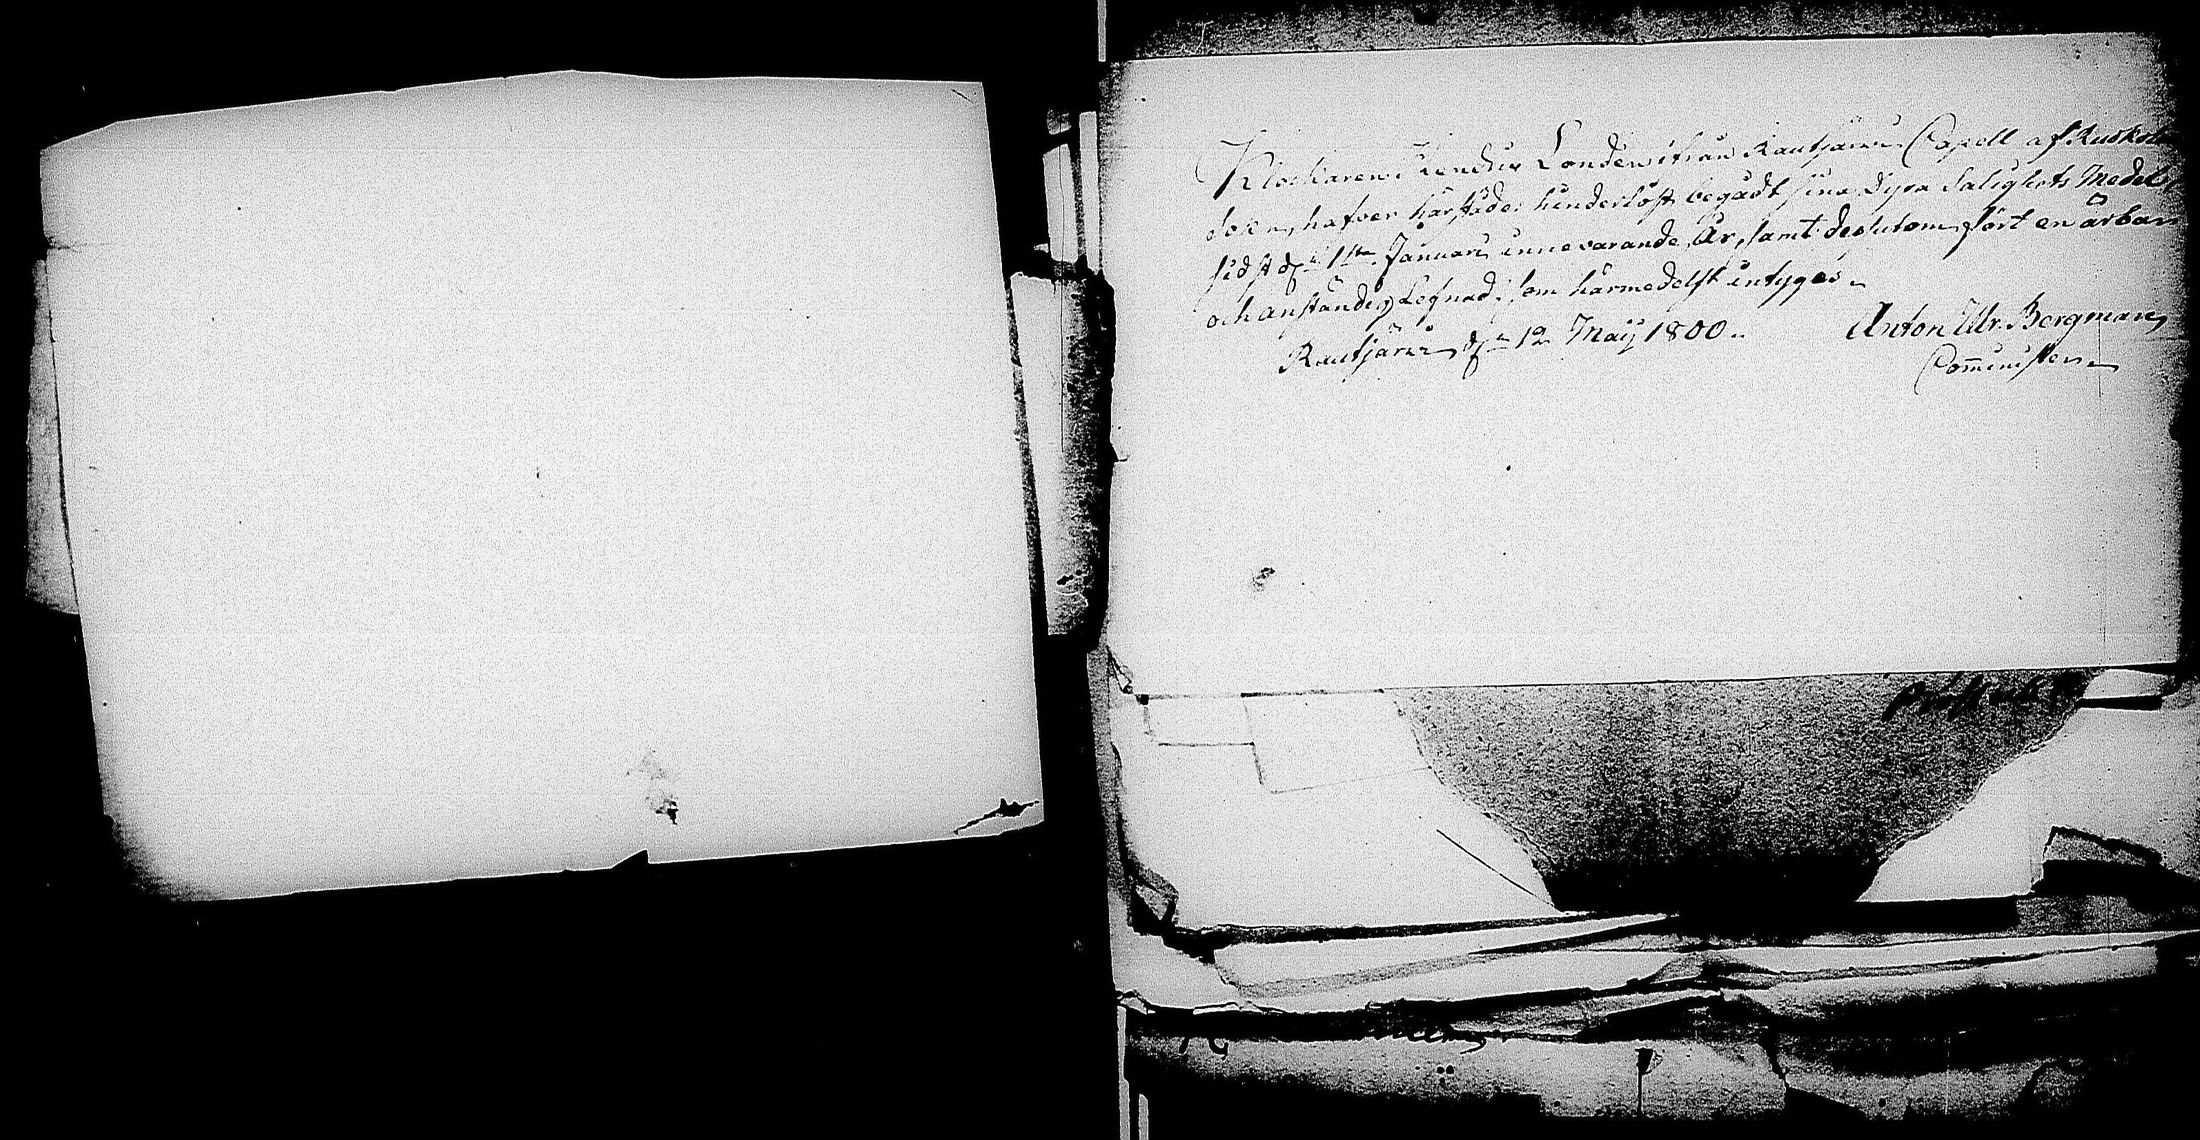 Klockaren Hendric Londen ifrån Rautjärvi Capell af Ruskola
soken, hafver härstädes hinderlöst begådt sina dyra Salighets Medel
sidst d. 1sta Januari innevarande År, samt desutom fört en ärbar
och anständig Lefnad; som härmedelst intygas.
Rautjärvi d. 12 Maij 1800.
Anton Ulr. Bergman
Comminister